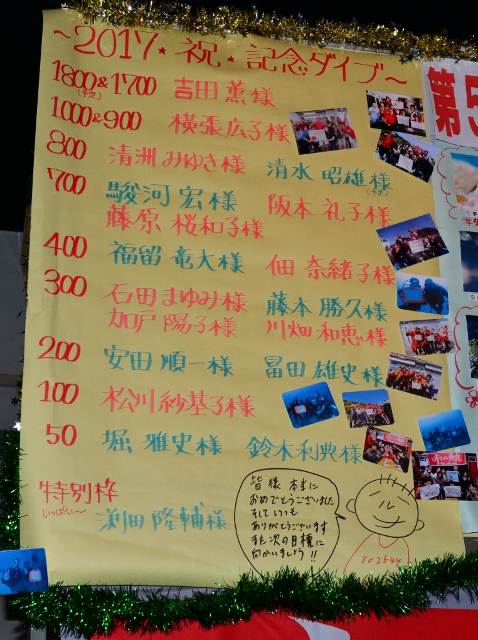 ～2017★祝★記念ダイブ～
1800&1700 吉田 薫様
(予定)
1000&900 横張広子様
800 清洲みゆき様 清水 昭雄様
(予定)
700 駿河 宏様 阪本 礼子様
藤原 桜和子様
400 福留 竜大様 佃 奈緒子様
300 石田まゆみ様 藤本 勝久様
加戸 陽子様 川畑 和恵様
200 安田 順一様 冨田 雄史様
100 松川紗基子様
50 堀 雅史様 鈴木利典様
特別枠
いっぱい～
渕田 隆輔様
皆様 本当に
おめでとうございました
そして いつも
ありがとうございます
また次の目標に
向かいましょう!!
第5